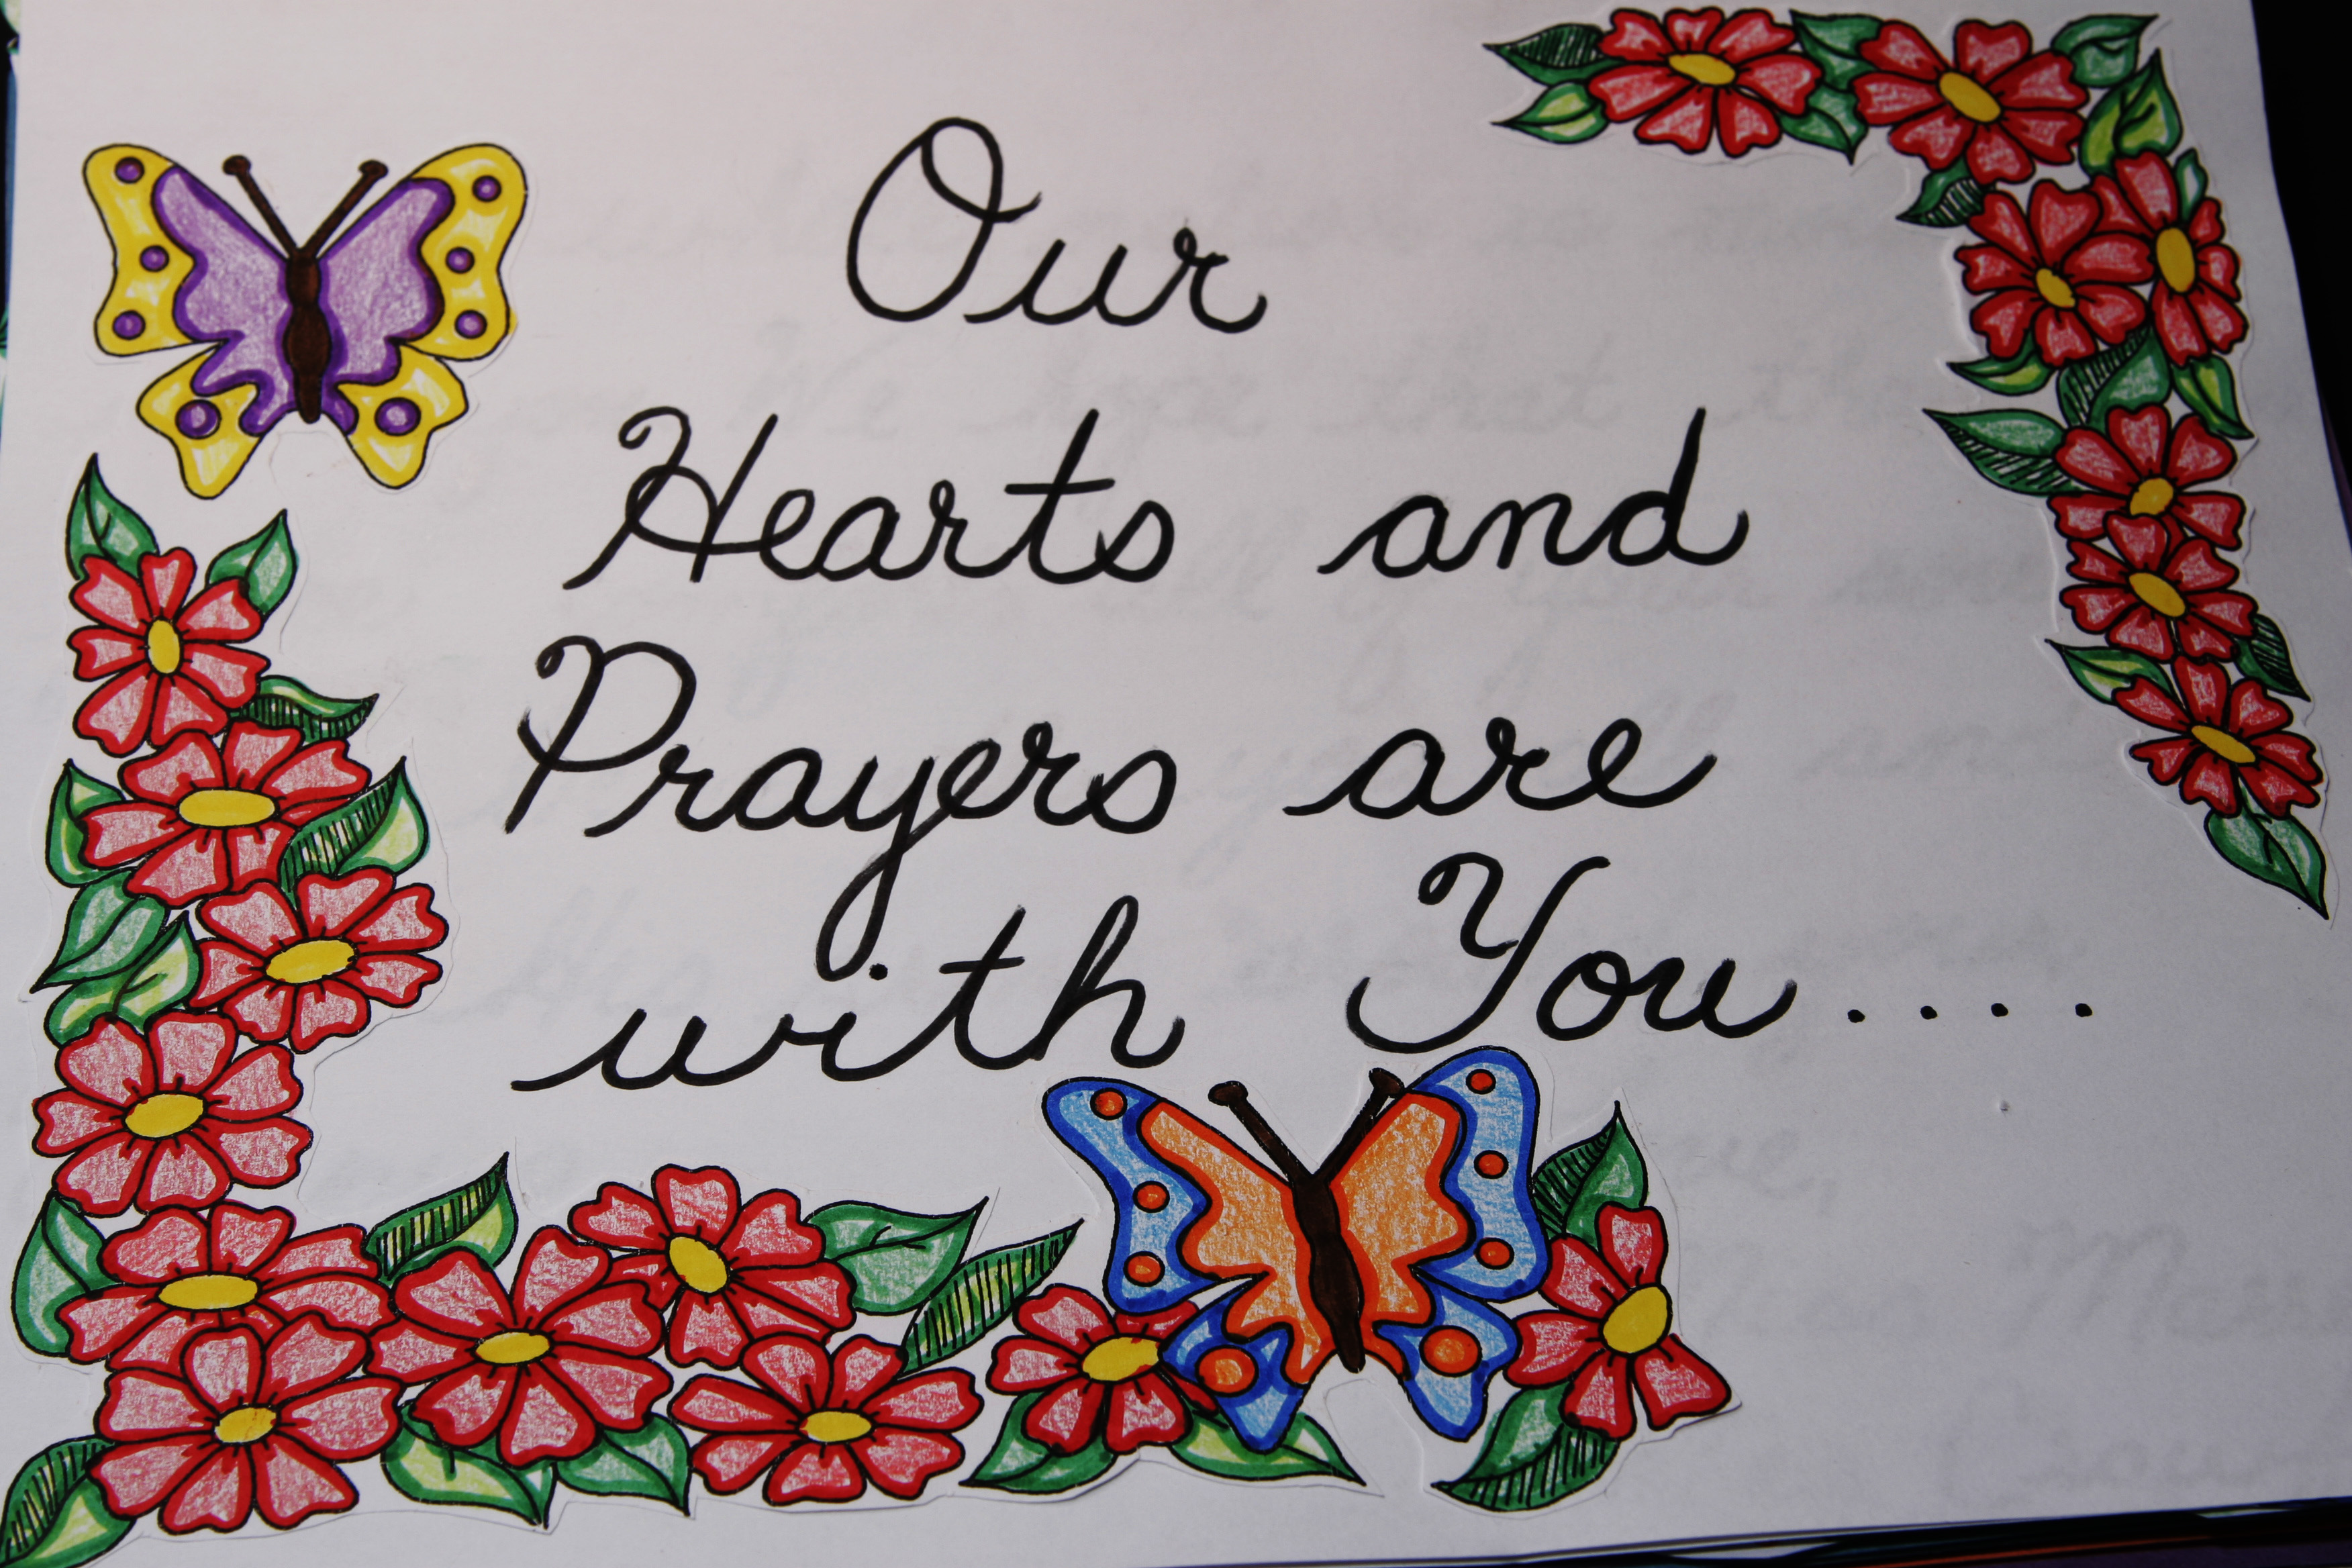 Our
Hearts and
Prayers are
with You....